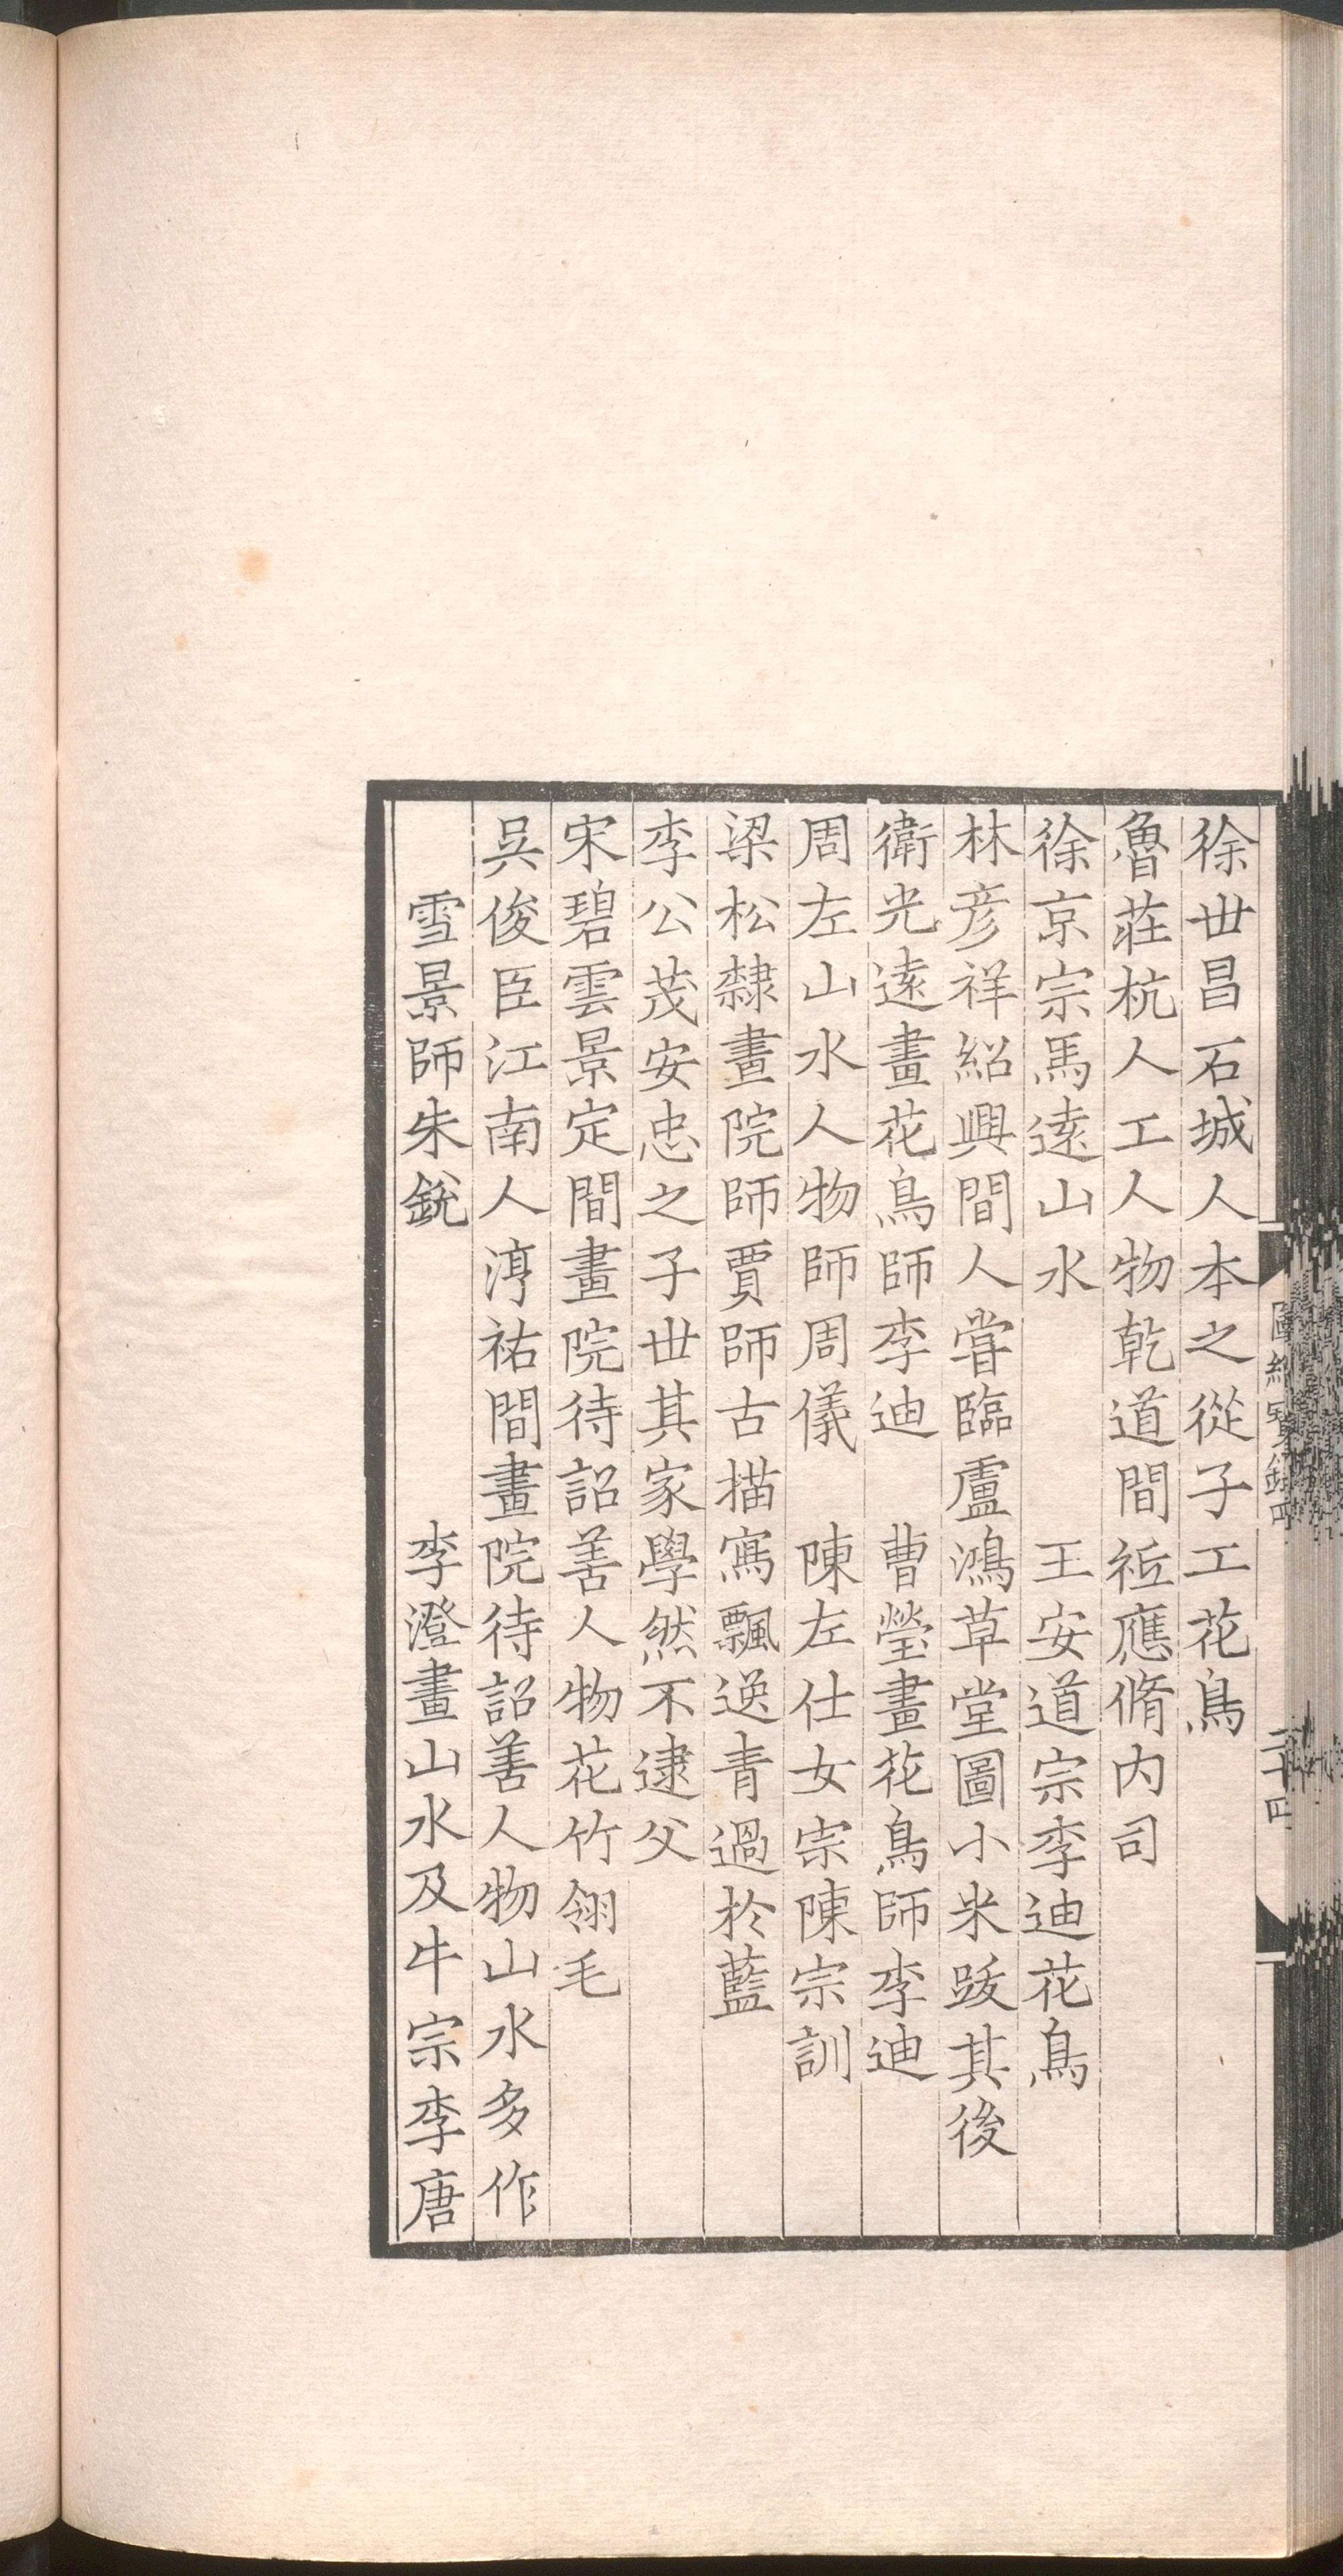 徐世昌石城人本之從子工花鳥
魯莊杭人工人物乾道間祗應脩内司
徐京宗馬遠山水　王安道宗李迪花鳥
林彦祥紹興間人嘗臨盧鴻草堂圖小米跋其後
衛光遠畫花鳥師李迪　曹瑩畫花鳥師李迪
周左山水人物師周儀　陳左仕女宗陳宗訓
梁松隸畫院師賈師古描寫飄逸青過於藍
李公茂安忠之子世其家學然不逮父
宋碧雲景定間畫院待詔善人物花竹翎毛
吳俊臣江南人淳祐間畫院待詔善人物山水多作
雪景師朱銳　李澄畫山水及牛宗李唐